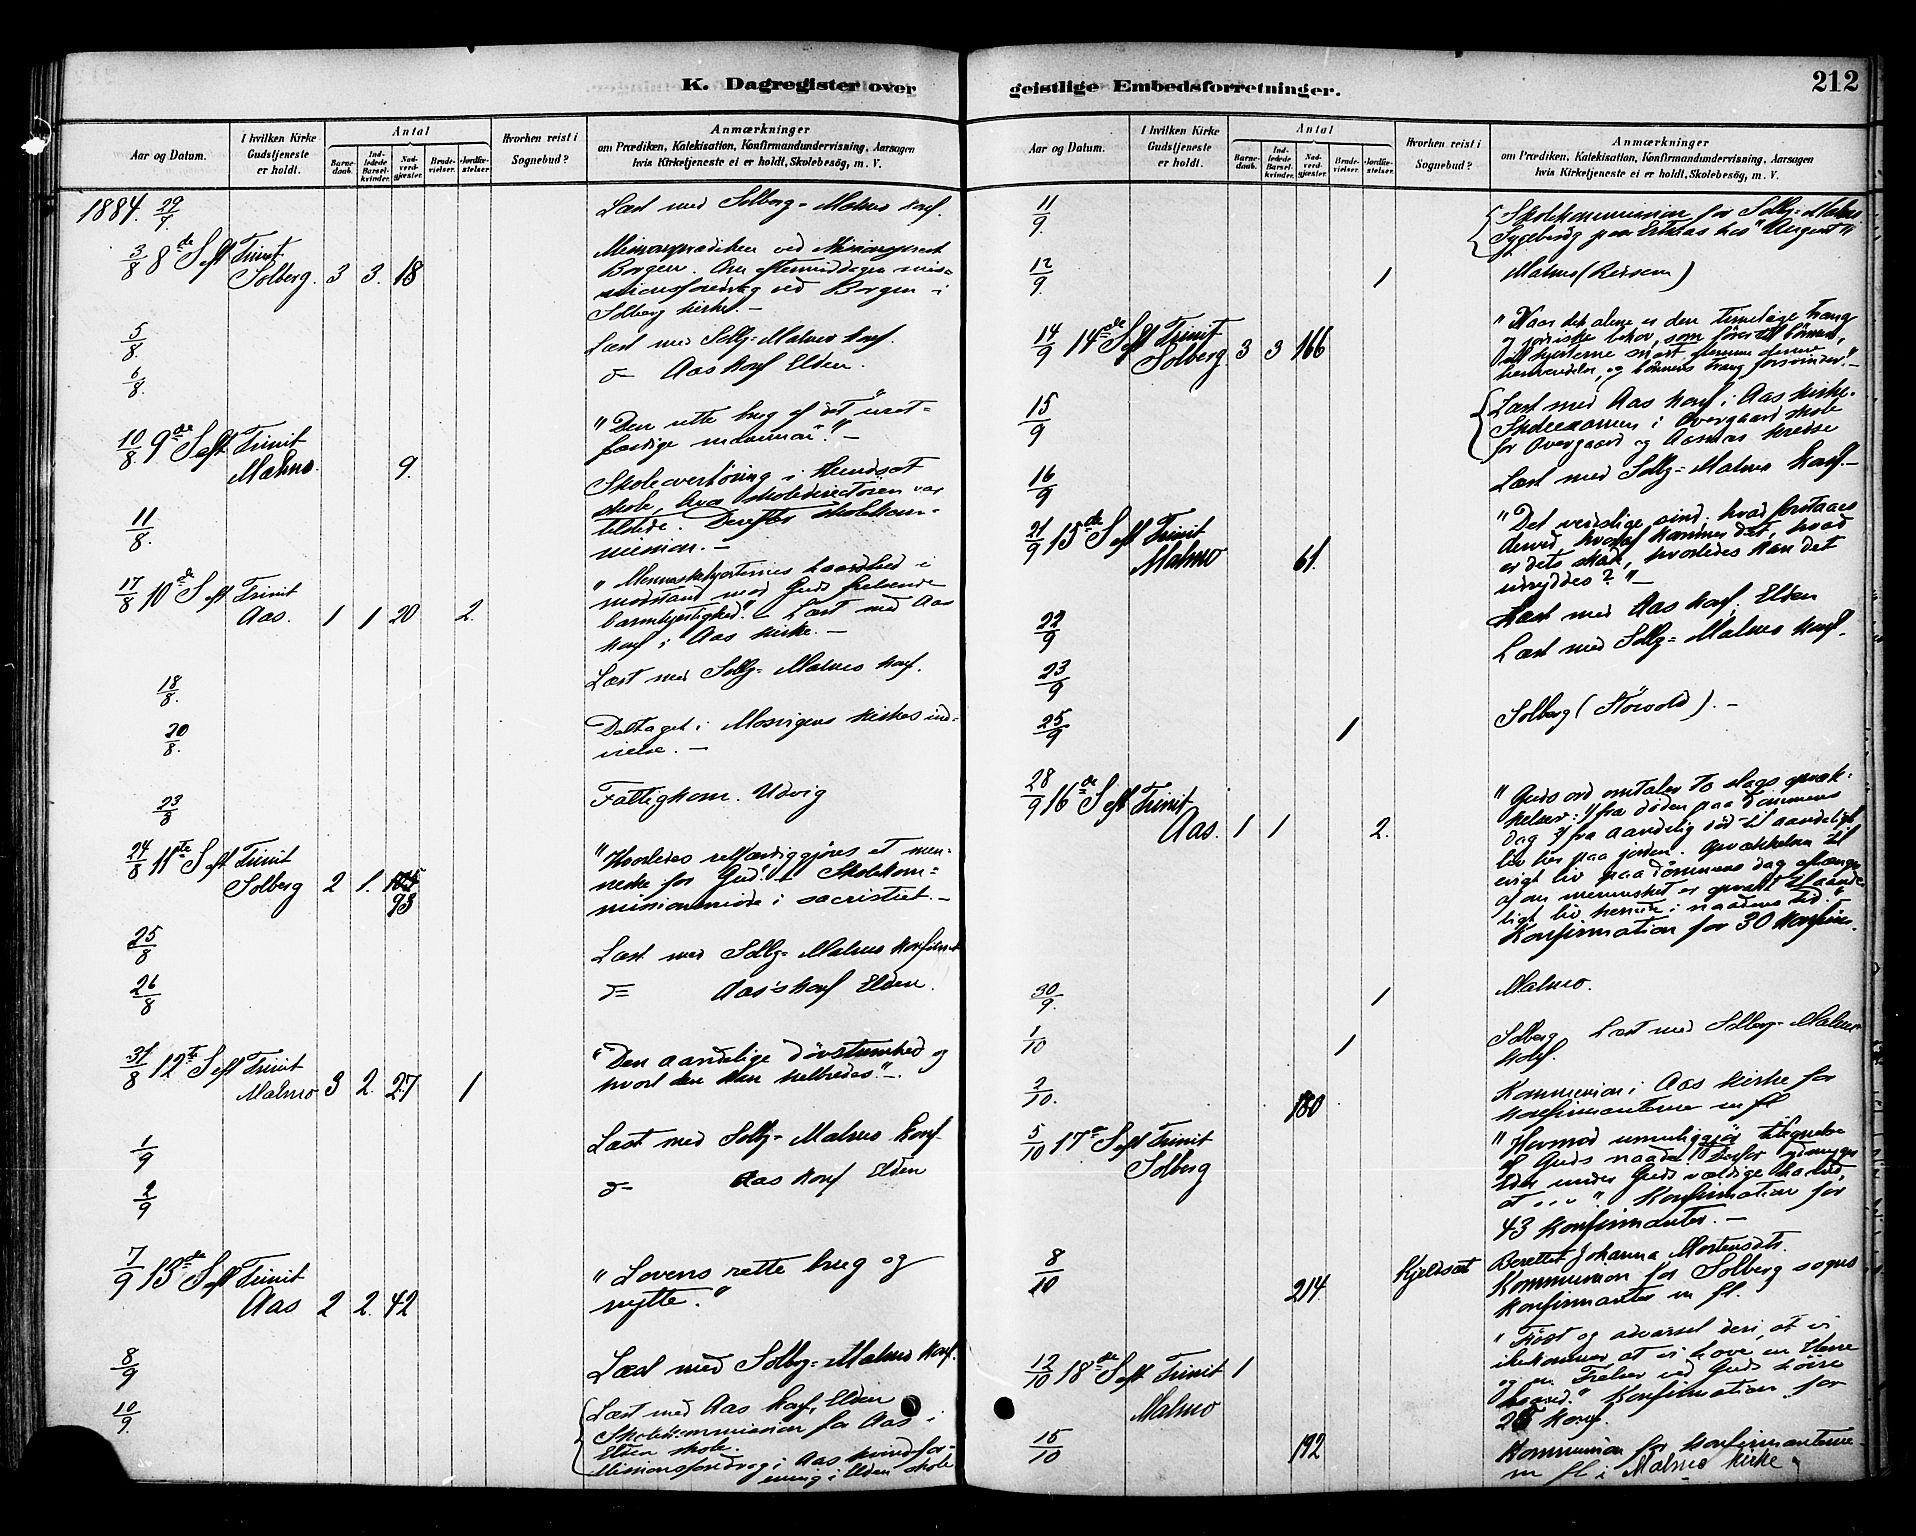 K. Dagregister over
Aar og Datum.
I hvilken Kirke
Gudstjeneste
er holdt.
Antal
Barne-
daab.
Ind-
ledede
Barsel-
kvinder.
Nad-
verd-
gjæster.
Brude-
vielser.
Jordfæ-
stelser.
Hvorhen reist i
Sognebud?
Anmærkninger
om Prædiken, Katekisation, Konfirmandundervisning, Aarsagen
hvis Kirketjeneste ei er holdt, Skolebesög, m. V.
1884. 29/7 Læst med Solberg= Malmo konf.
3/8 8de S eft Trinit
Solberg. 3 3. 18
Missionsprædiken ved
Borgen. Om eftermiddagen mis-
sionsforedrag ved Borgen i
Solberg kirke. –
5/8 Læst med Solbg= Malmo konf.
6/8. do Aas konf Elden.
10/8 9de S eft Trinit
Malmo. 9.
"Den rette brug af det "uret-
færdige mammon". –
11/8. Skoleoverhöring i
skole, hvor skoledirectören var
tilstede. Derefter skolekom-
mission. –
17/8 10de S eft Trinit
Aas. 1 1 20 2.
"Menneskehjerternes haardhed i
modstand mod Guds frelsende
barmhjertighed". – Læst med Aas
konf i Aas kirke. –
18/8. Læst med Solbg= Malmo konf.
20/8. Deltaget i Mosvigens kirkes ind-
vielse. –
23/8 Fattigkom. Udvig
24/8 11te S eft Trinit
Solberg 2 1. 93
"Hvorledes retfærdiggjöres et men-
neske for Gud". + Skolekom-
missionsmöde i sacristiet. –
25/8 Læst med Solbg= Malmo
26/8 do Aas's konf Elden.
31/8 12te S eft Trinit
Malmo 3 2. 27 1
"Den aandelige Dövstumhed og
hvori den kan helbredes". –
1/9 Læst med Solbg= Malmo konf
2/9 do Aas konf Elden
7/9 13de S eft Trinit
Aas 2 2. 42
"Lovens rette brug og
nytte."
8/9 Læst med Solbg= Malmo konf.
10/9. Læst med Aas konf, Elden
Skolekommission for Aas i
Elden skole.
Missionsforedrag i Aas kvindefor-
ening i Elden skole
geistlige Embedsforretninger.
212
Aar og Datum.
I hvilken Kirke
Gudstjeneste
er holdt.
Antal
Barne-
daab.
Ind-
ledede
Barsel-
kvinder.
Nad-
verd-
gjæster.
Brude-
vielser.
Jordfæ-
stelser.
Hvorhen reist i
Sognebud?
Anmærkninger
om Prædiken, Katekisation, Konfirmandundervisning, Aarsagen
hvis Kirketjeneste ei er holdt, Skolebesög, m. V.
11/9. Skolekommission for Solbg= Malmo
Sygebesög paa
12/9. 1 Malmo
14/9 14de S eft Trinit
Solberg 3 3 166
"Naar det alene er den timelige trang
og jordiske behov, som förer til bönnen,
vil hjerterne snart glemme denne
henvendelse, og bönnens trang forsvinder". –
15/9 Læst med Aas konf i Aas kirke.
Skoleexamen i Overgaard skole
for Overgaard og Aasnæs kredse
16/9 Læst med Solbg= Malmo konf. –
21/9 15de S eft Trinit
Malmo 61.
"Det verdslige sind, hvad forstaaes
derved, hvoraf kommer det, hvad
er dets skade, hvorledes kan det
udryddes?" –
22/9 Læst med Aas konf. Elden
23/9 Læst med Solbg= Malmo konf.
25/9 1 Solberg ( Störvold ). –
28/9 16de S eft Trinit
Aas. 1 1 2.
"Guds ord omtaler to slags opvæk-
kelser: 1) fra döden paa dommens
dag 2) fra aandelig död til aandeligt
liv her paa jorden. Opvækkelsen til
evigt liv paa dommens dag afhænger
af om mennesket er opvakt til aande-
ligt liv hernede i naadens tid."
Konfirmation for 30 konfirm.
30/9. 1 Malmo.
1/10 1 Solberg Læst med Solberg= Malmo
konf.
2/10. 180 Kommunion i Aas kirke for
konfirmanterne m fl
5/10 17de S eft Trinit
Solberg
"Hovmod umuliggjör tilegnelse
af Guds naade. Derfor ydmyger
Eder under Guds vældige haand,
at . . . ". Konfirmation for
43 konfirmanter. –
8/10 214. Kjeldsæt Berettet Johanna Mortensdtr.
Kommunion for Solberg sogns
konfirmanter m fl.
12/10 18de S eft Trinit 1
Malmo
"Tröst og advarsel deri, at vi
ihukommer at vi have en Herre
og en Frelser ved Guds höire
haand." Konfirmation for
25 konf.
15/10 192 Kommunion for konfirmanterne
m fl i Malmo kirke